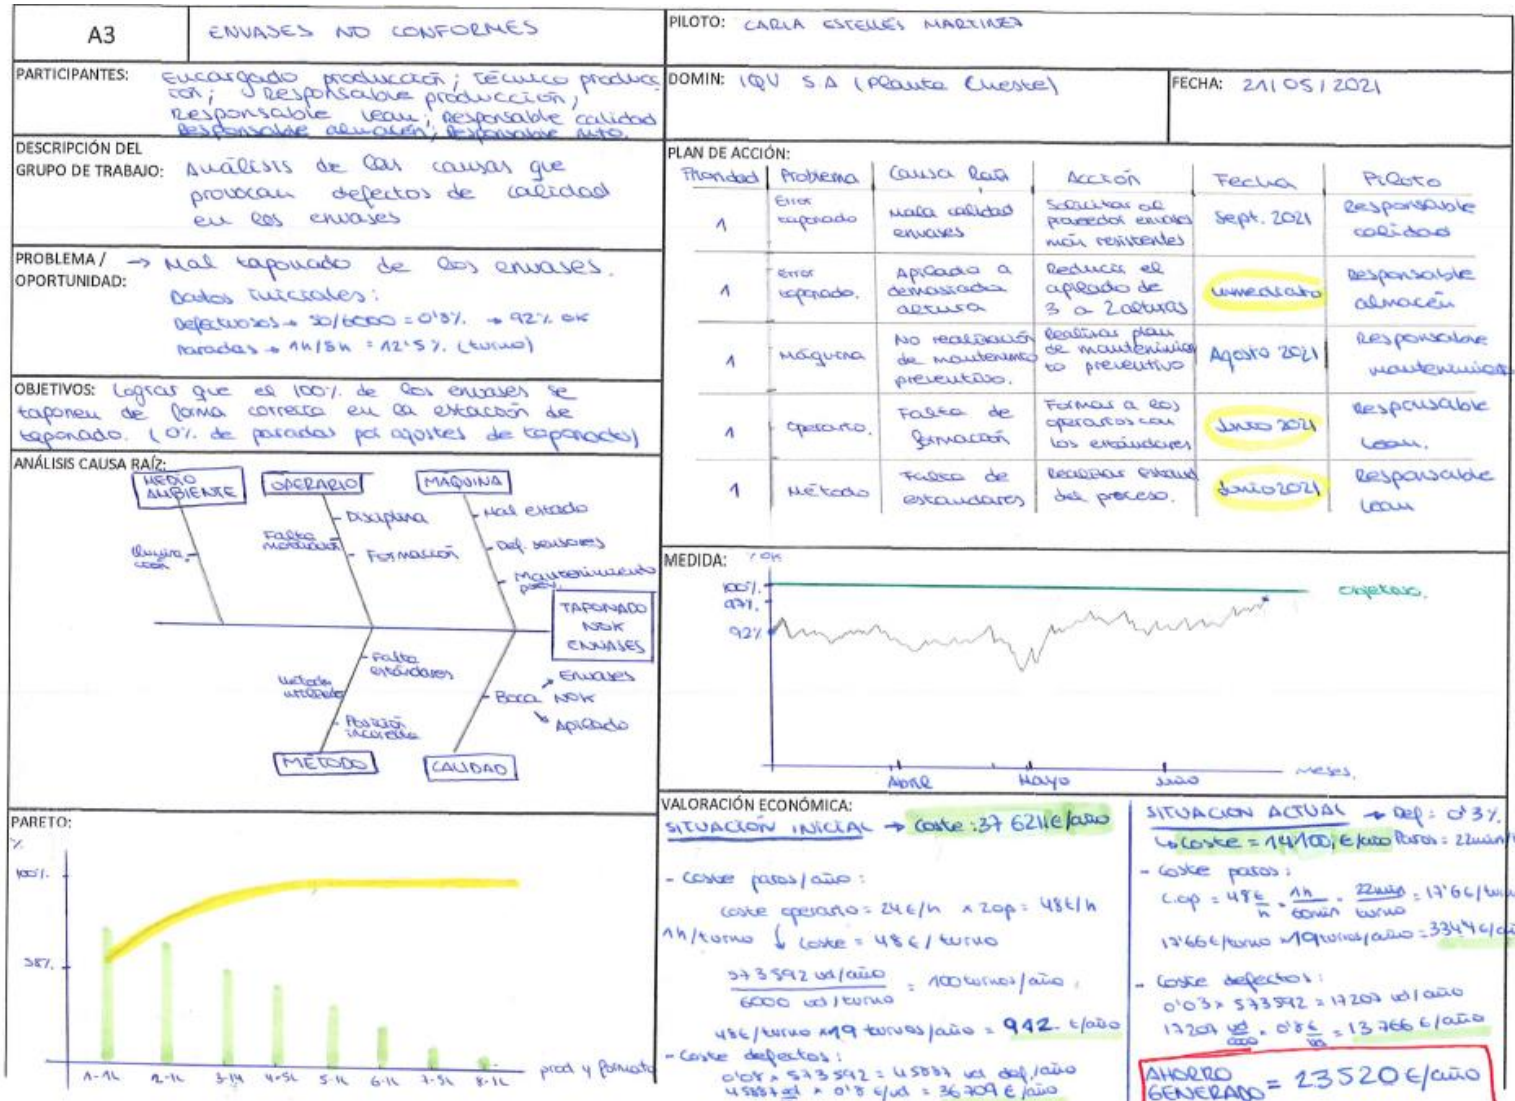 A3
ENVASES NO CONFORMES
PILOTO: CARLA ESTELLÉS MARTINEZ
PARTICIPANTES: Encargado producción; Técnico producc
ión; Responsable producción;
Responsable Lean; Responsable calidad
Responsable almacén; Responsable Mto.
DOMIN: IQV S.A (Planta Cheste)
FECHA: 21/05/2021
DESCRIPCIÓN DEL
GRUPO DE TRABAJO: Análisis de las causas que
provocan defectos de calidad
en los envases
PROBLEMA / → Mal taponado de los envases.
OPORTUNIDAD:
Datos iniciales:
Defectuosos → 50/6000 = 0'8%. → 92% OK
Paradas → 1h/8h = 12'5%. (turno)
OBJETIVOS: Lograr que el 100% de los envases se
taponen de forma correcta en la estación de
taponado. (0% de paradas por ajustes de taponado)
ANÁLISIS CAUSA RAÍZ:
MEDIO
AMBIENTE
OPERARIO
MÁQUINA
Ilumina-
ción
Falta
motivación
- Disciplina
- Formación
- Mal estado
- Def. sensores
- Mantenimiento
prev.
TAPONADO
NOK
ENVASES
Método
utilizado
- Falta
estándares
- Posición
incorrecta
- Boca
Envases
NOK
Apilado
MÉTODO
CALIDAD
PARETO:
%
100%
38%
1-1L 2-1L 3-1L 4-5L 5-1L 6-1L 7-5L 8-1L
prod y formato
PLAN DE ACCIÓN:
Prioridad Problema Causa Raíz Acción Fecha Piloto
1
Error
taponado
Mala calidad
envases
Solicitar al
proveedor envases
más resistentes
Sept. 2021
Responsable
calidad
1
Error
taponado.
Apilado a
demasiada
altura
Reducir el
apilado de
3 a 2 alturas
Inmediato
Responsable
almacén
1
Máquina
No realización
de mantenimiento
preventivo.
Realizar plan
de mantenimien
to preventivo
Agosto 2021
Responsable
mantenimiento
1
Operario.
Falta de
formación
Formar a los
operarios con
los estándares
Junio 2021
Responsable
Lean.
1
Método
Falta de
estandares
Realizar estand
del proceso.
Junio 2021
Responsable
Lean
MEDIDA:
% OK
100%.
97%.
92%
Objetivo.
Abril Mayo Junio
Meses.
VALORACIÓN ECONÓMICA:
SITUACIÓN INICIAL → Coste: 37 621€/año
- Coste paros/año:
Coste operario = 24€/h x 2op = 48€/h
1h/turno ↓ Coste = 48€/turno
573592 ud/año
6000 ud/turno
= 100 turnos/año.
48€/turno x 19 turnos/año = 912. €/año
- Coste defectos:
0'08 x 573592 = 45887 ud def/año
45887 ud x 0'8 €/ud = 36709 €/año
SITUACIÓN ACTUAL → Def: 0'3%.
↳ Coste = 14100, €/año Paros = 22min/t
- Coste paros:
C.op = 48 €/h . 1h/60min . 22min/turno = 17'6€/turno
17'66€/turno x 19 turnos/año = 334'4€/año
- Coste defectos:
0'03 x 573592 = 17207 ud/año
17207 ud/año . 0'8 €/ud = 13766 €/año
AHORRO
GENERADO = 23520€/año